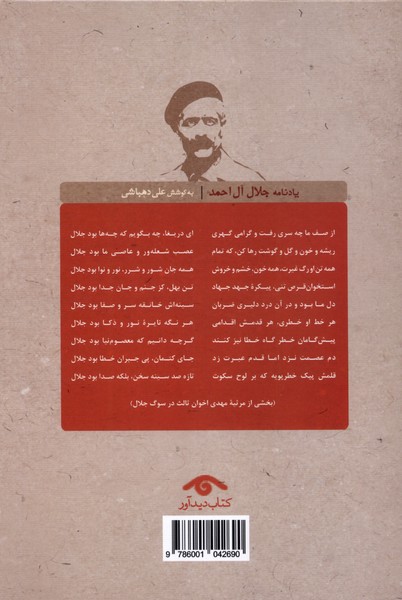 یادنامه جلال آل احمد | به کوشش علی دهباشی
از صف ما چه سری رفت و گرامی گهری ای دریغا، چه بگویم که چه‌ها بود جلال
ریشه و خون و گل و گوشت رها کن، که تمام عصب شعله‌ور و عاصی ما بود جلال
همه تن اورگ غیرت، همه خون، خشم و خروش همه جان شور و شرر، نور و نوا بود جلال
استخوان‌قرص تنی، پیکرهٔ جهد جهاد تن بهل، کز جنم و جان جدا بود جلال
دل ما بود و در آن درد دلیری ضربان سینه‌اش خانقه سر و صفا بود جلال
هر خط او خطری، هر قدمش اقدامی هر نگه نایرهٔ نور و ذکا بود جلال
پیش‌گامان خطر گاه خطا نیز کنند گرچه دانیم که معصوم‌نیا بود جلال
دم عصمت نزد اما قدم عبرت زد جای کتمان، پی جبران خطا بود جلال
قلمش پیک خطرپویه که بر لوح سکوت تازه صد سینه سخن، بلکه صدا بود جلال
(بخشی از مرثیهٔ مهدی اخوان ثالث در سوگ جلال)
کتاب دیدآور
9 786001 042690